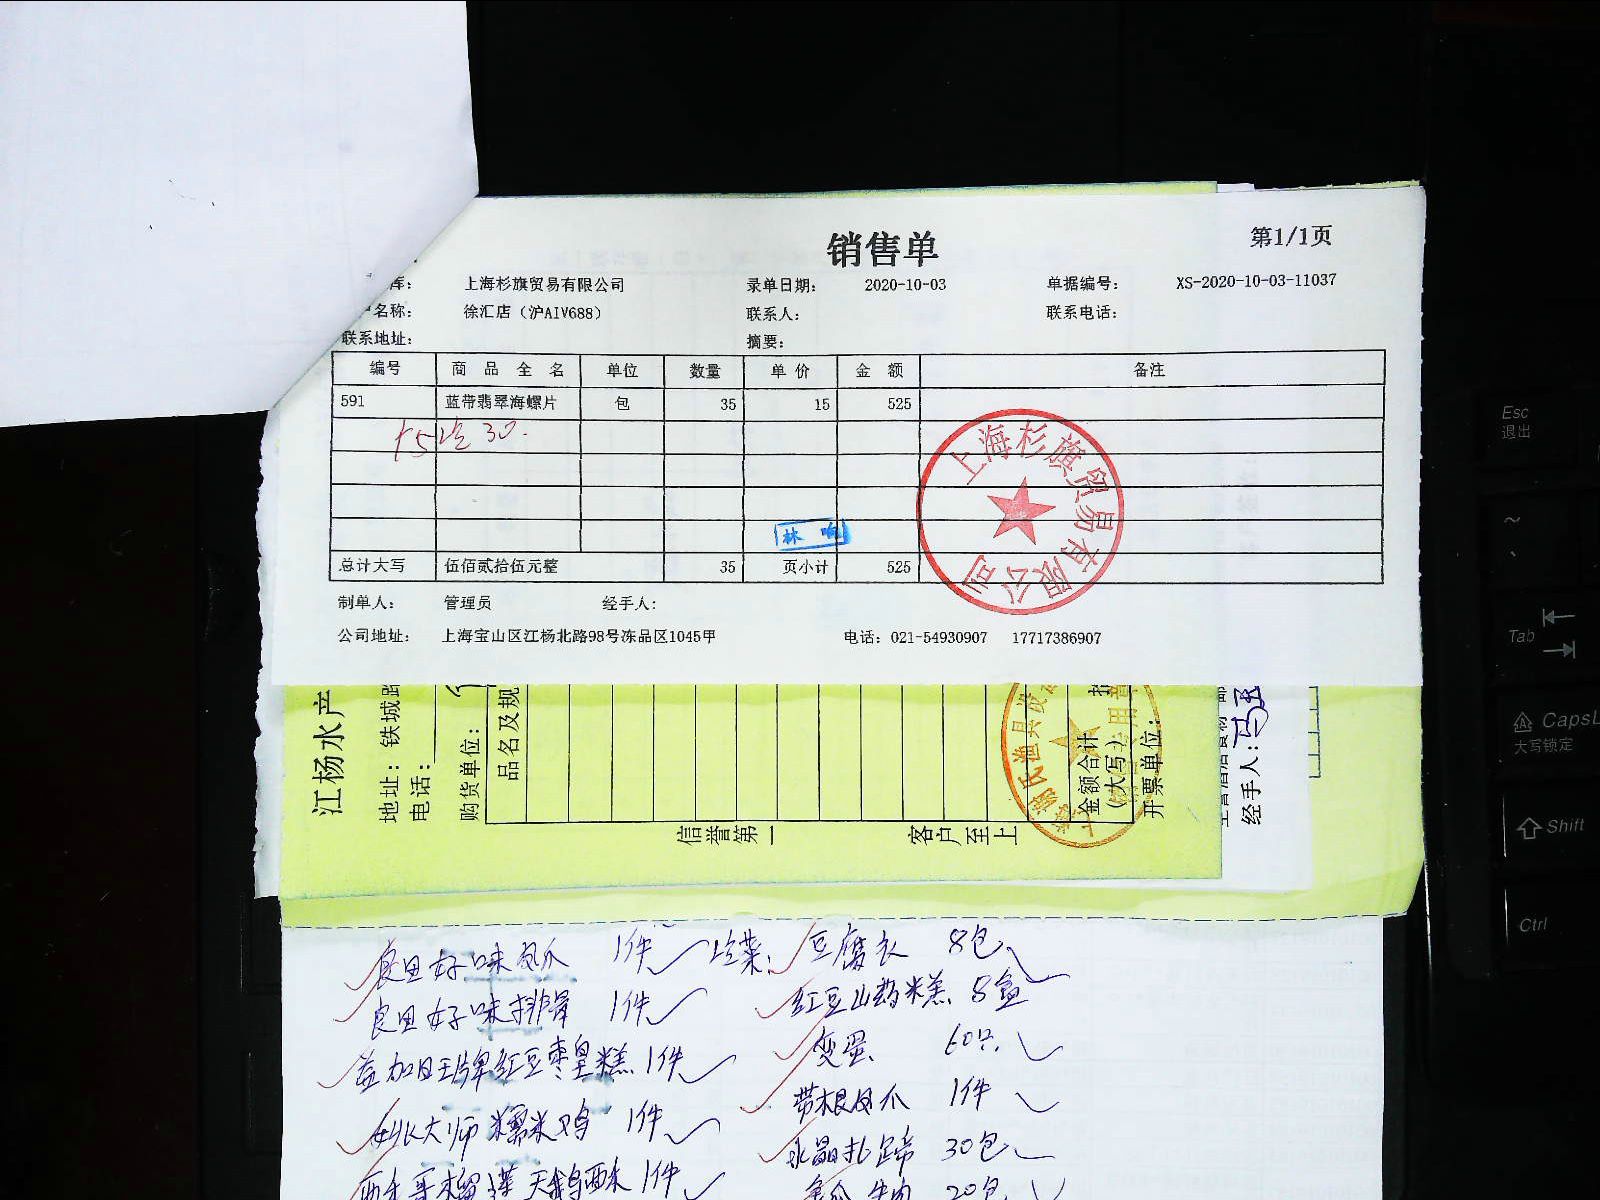 销售单
第1/1页
库： 上海杉旗贸易有限公司 录单日期： 2020-10-03 单据编号： XS-2020-10-03-11037
户名称： 徐汇店（沪AIV688） 联系人： 联系电话：
联系地址： 摘要：
编号 商品全名 单位 数量 单价 金额 备注
591 蓝带翡翠海螺片 包 35 15 525
林 响
上海杉旗贸易有限公司
总计大写 伍佰贰拾伍元整 35 页小计 525
制单人： 管理员 经手人：
公司地址： 上海宝山区江杨北路98号冻品区1045甲 电话：021-54930907 17717386907
江杨水产
地址：铁城路
电话：
购货单位：
品名及规
金额合计
(大写)
开票单位：
信誉第一 客户至上
经手人：
良田好味凤爪 1件
良田好味排骨 1件
1件
大师糯米鸡 1件
1件
豆腐衣 8包
红豆山药糕 8盒
变蛋 60只
带根凤爪 1件
水晶扎蹄 30包
牛肉 20包
Esc
退出
Tab
CapsL
大写锁定
Shift
Ctrl